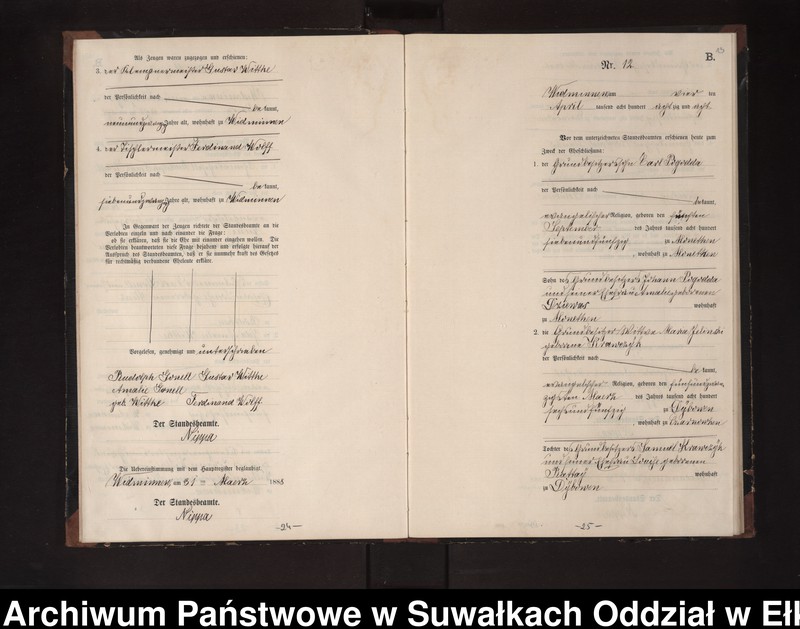 Als Zeugen waren zugezogen und erschienen:
3. der Gustav Witthe
der Persönlichkeit nach
be kannt,
neunundzwanzig Jahre alt, wohnhaft zu Widminnen
4. der Tischlermeister Ferdinand Wolff
der Persönlichkeit nach
be kannt,
siebenundzwanzig Jahre alt, wohnhaft zu Widminnen
In Gegenwart der Zeugen richtete der Standesbeamte an die
Verlobten einzeln und nach einander die Frage:
ob sie erklären, daß sie die Ehe mit einander eingehen wollen. Die
Verlobten beantworteten diese Frage bejahend und erfolgte hierauf der
Ausspruch des Standesbeamten, daß er sie nunmehr kraft des Gesetzes
für rechtmäßig verbundene Eheleute erkläre.
Vorgelesen, genehmigt und unterschrieben
Rudolph Gustav Witthe
Amalie
geb. Witthe Ferdinand Wolff
Der Standesbeamte.
Nippa
Die Uebereinstimmung mit dem Hauptregister beglaubigt
Widminnen, am 31 ten Maerz 1888
Der Standesbeamte.
Nippa
-24-
B.
Nr. 12
Widminnen am vier ten
April tausend acht hundert acht zig und acht
Vor dem unterzeichneten Standesbeamten erschienen heute zum
Zweck der Eheschließung:
1. der Grundbesitzersohn Carl Pogodda
der Persönlichkeit nach
be kannt,
evangelischer Religion, geboren den fünften
September des Jahres tausend acht hundert
siebenundfünfzig zu Monethen
, wohnhaft zu Monethen
Sohn des Grundbesitzers Johann Pogodda
und seiner Ehefrau Amalie geborenen
Dziewas wohnhaft
zu Monethen
2. die Grundbesitzer Wittwe Marie
geborene Krawczyk
der Persönlichkeit nach
be kannt,
evangelischer Religion, geboren den fünfundzwan
zigsten Maerz des Jahres tausend acht hundert
sechsundfünfzig zu Dybowen
, wohnhaft zu Czarnowken
Tochter des Grundbesitzers Samuel Krawczyk
und seiner Ehefrau Louise geborenen
wohnhaft
zu Dybowen
-25-
Archiwum Państwowe w Suwałkach Oddział w Ełk